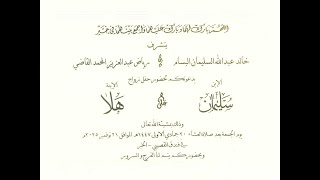 اللهم بارك لهما وبارك عليهما واجمع بينهما في خير
يتشرف
خالد عبدالله السليمان البسام و رياض عبدالعزيز الحمد القاضي
بدعوتكم لحضور حفل زواج
الابن الابنة
سليمان هلا
وذلك بمشيئة الله تعالى
يوم الجمعة بعد صلاة العشاء ٣٠ جمادى الأولى ١٤٤٧هـ الموافق ٢١ نوفمبر ٢٠٢٥م
القصيبي - الخبر
وبحضوركم يتم لنا الفرح والسرور